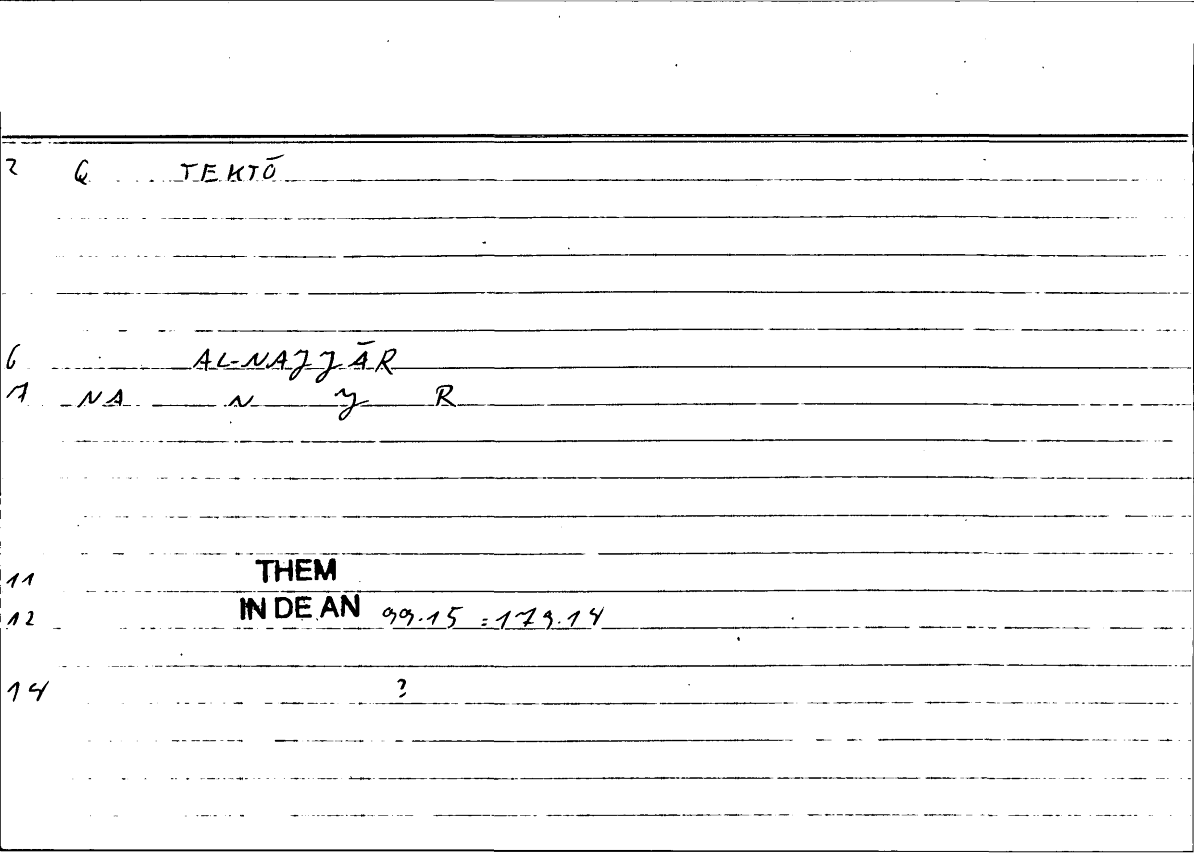 2 Q TEKTŌ
6 AL-NAJJĀR
7 NA N J R
11 THEM
12 IN DE AN 99.15 = 179.14
14 ?